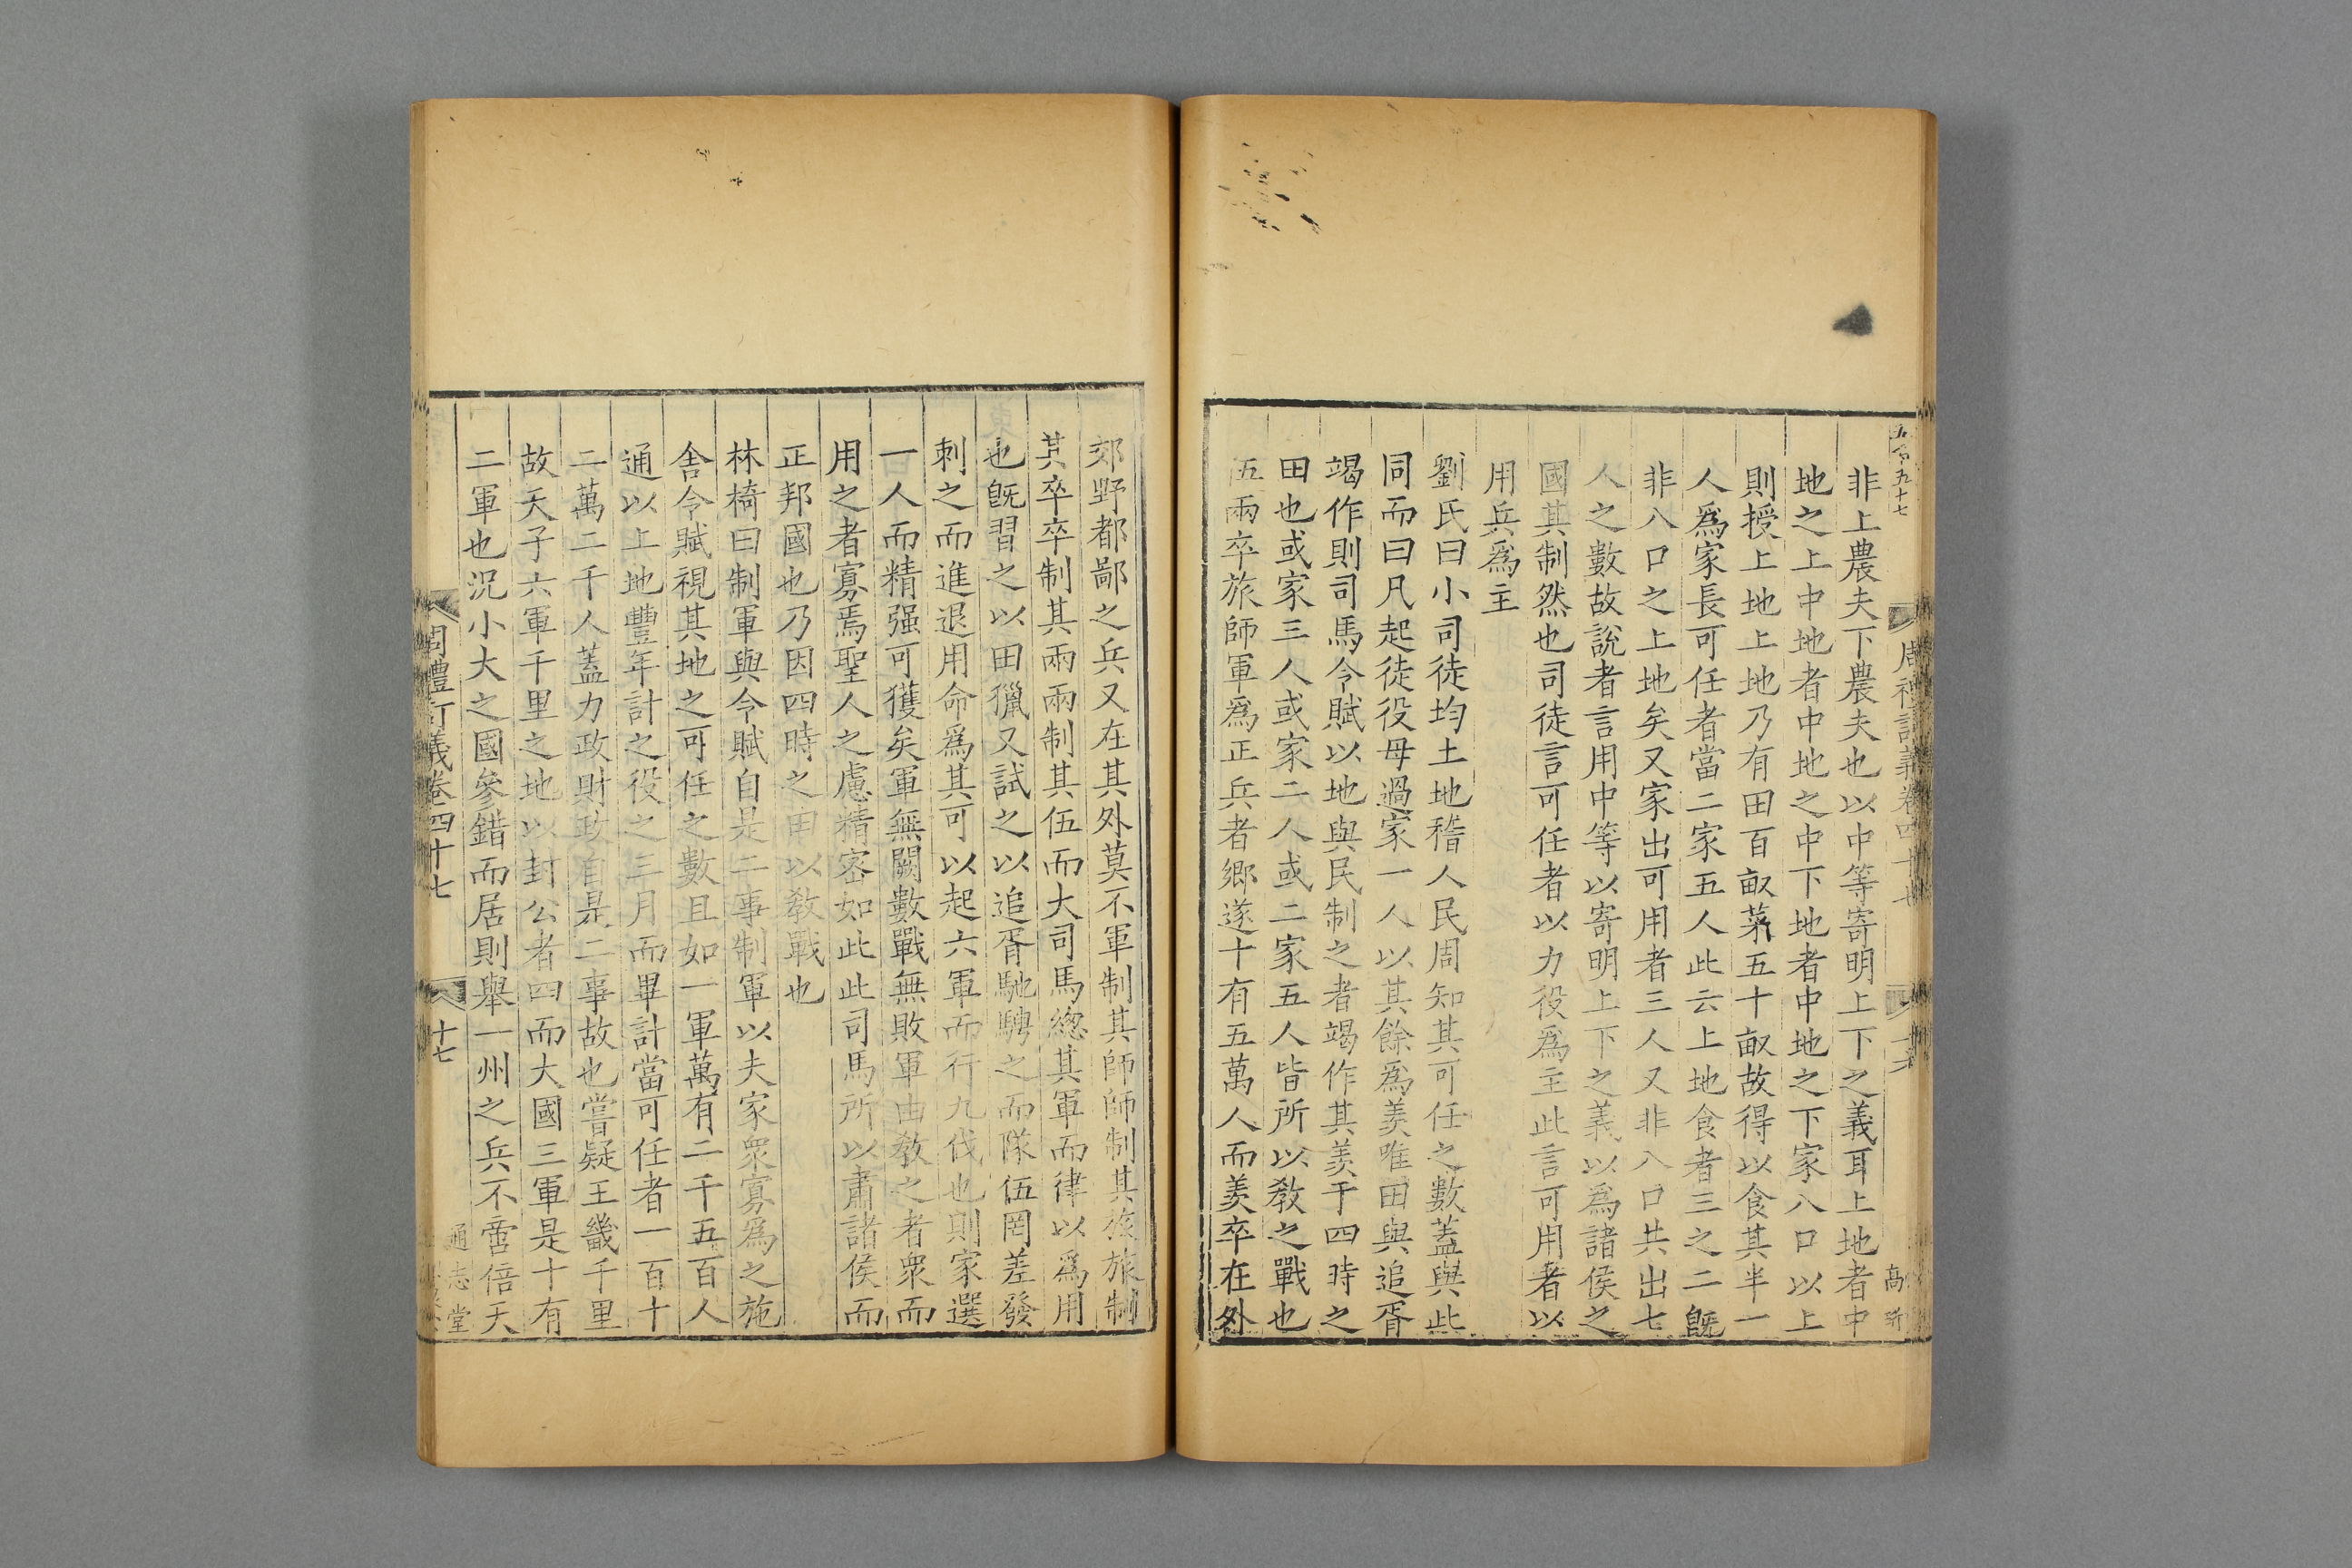 五百五十七
周禮訂義卷四十七
十六
高珩
非上農夫下農夫也以中等寄明上下之義耳上地者中
地之上中地者中地之中下地者中地之下家八口以上
則授上地上地乃有田百畝菜五十畝故得以食其半一
人爲家長可任者當二家五人此云上地食者三之二旣
非八口之上地矣又家出可用者三人又非八口共出七
人之數故說者言用中等以寄明上下之義以爲諸侯之
國其制然也司徒言可任者以力役爲主此言可用者以
用兵爲主
劉氏曰小司徒均土地稽人民周知其可任之數蓋與此
同而曰凡起徒役毋過家一人以其餘爲羨唯田與追胥
竭作則司馬令賦以地與民制之者竭作其羨于四時之
田也或家三人或家二人或二家五人皆所以教之戰也
五兩卒旅師軍爲正兵者鄉遂十有五萬人而羨卒在外
郊野都鄙之兵又在其外莫不軍制其師師制其旅旅制
其卒卒制其兩兩制其伍而大司馬總其軍而律以爲用
也旣習之以田獵又試之以追胥馳騁之而隊伍罔差發
刺之而進退用命爲其可以起六軍而行九伐也則家選
一人而精强可獲矣軍無闕數戰無敗軍由教之者衆而
用之者寡焉聖人之慮精密如此此司馬所以肅諸侯而
正邦國也乃因四時之田以教戰也
林椅曰制軍與令賦自是二事制軍以夫家衆寡爲之施
舍令賦視其地之可任之數且如一軍萬有二千五百人
通以上地豐年計之役之三月而畢計當可任者一百十
二萬二千人蓋力政財政自是二事故也嘗疑王畿千里
故天子六軍千里之地以封公者四而大國三軍是十有
二軍也況小大之國參錯而居則舉一州之兵不啻倍天
周禮訂義卷四十七
十七
通志堂